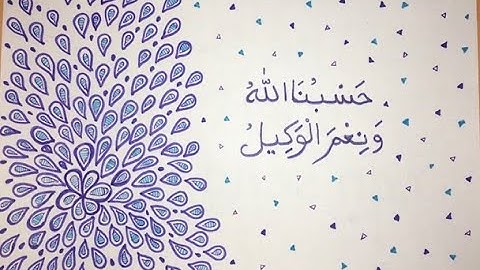 حَسْبُنَا اللهُ
وَنِعْمَ الْوَكِيلُ